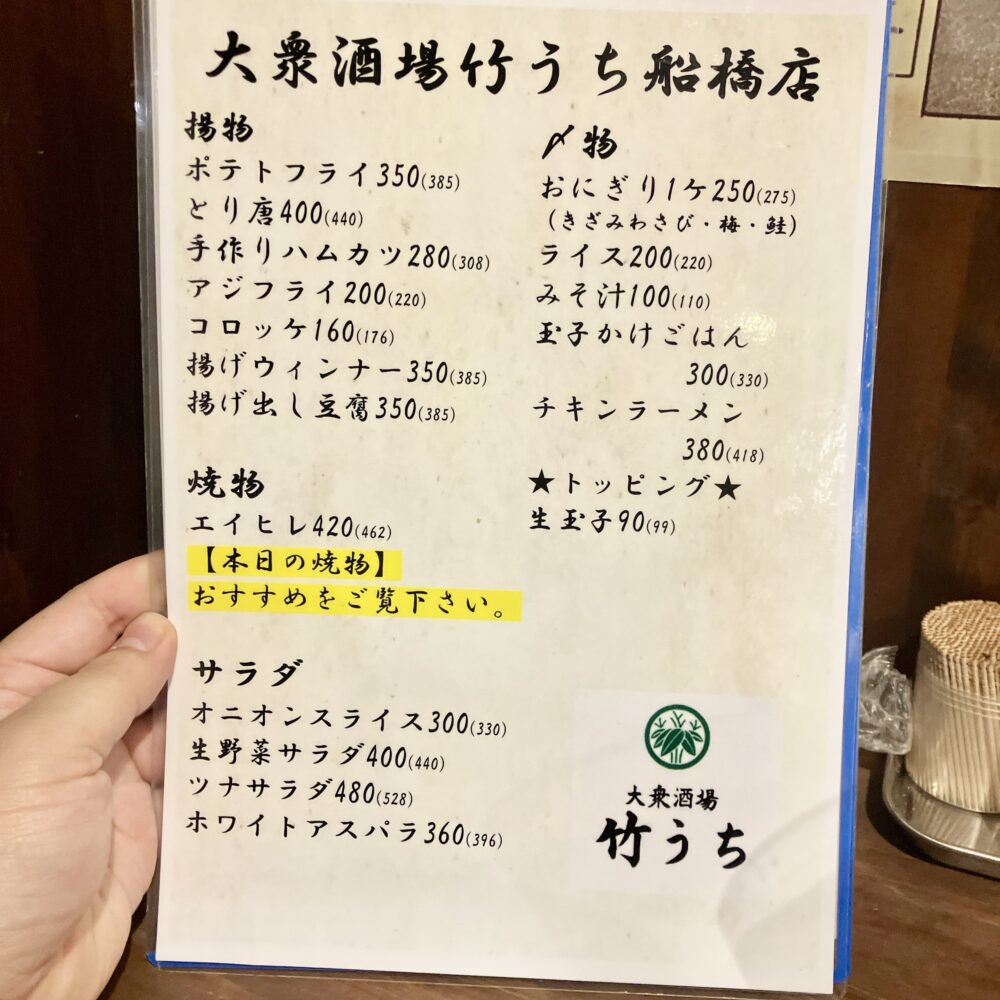 大衆酒場竹うち船橋店
揚物
ポテトフライ350(385)
とり唐400(440)
手作りハムカツ280(308)
アジフライ200(220)
コロッケ160(176)
揚げウィンナー350(385)
揚げ出し豆腐350(385)
焼物
エイヒレ420(462)
【本日の焼物】
おすすめをご覧下さい。
サラダ
オニオンスライス300(330)
生野菜サラダ400(440)
ツナサラダ480(528)
ホワイトアスパラ360(396)
〆物
おにぎり1ケ250(275)
(きざみわさび・梅・鮭)
ライス200(220)
みそ汁100(110)
玉子かけごはん
300(330)
チキンラーメン
380(418)
★トッピング★
生玉子90(99)
大衆酒場
竹うち